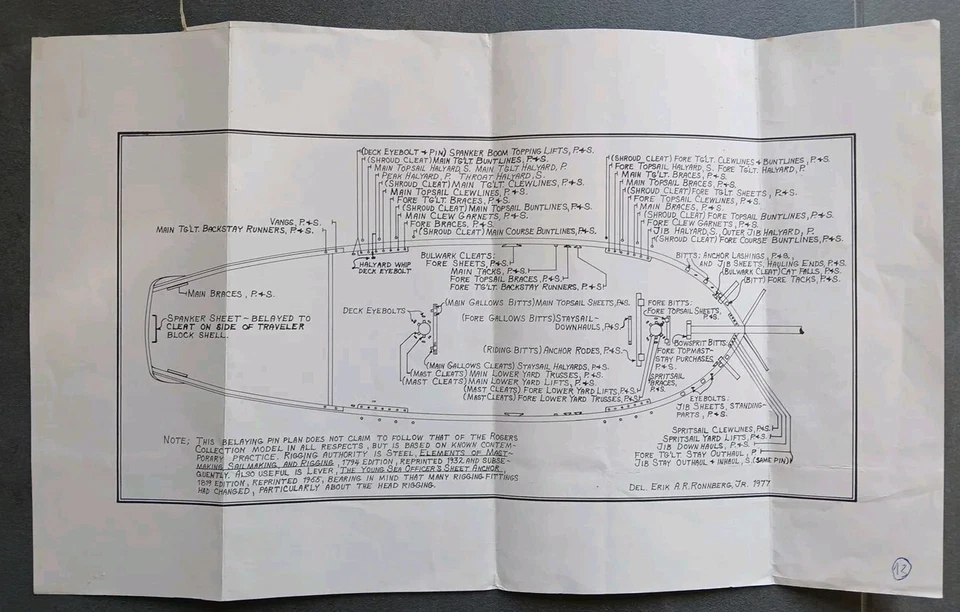 (DECK EYEBOLT & PIN) SPANKER BOOM TOPPING LIFTS, P.&S.
(SHROUD CLEAT) MAIN TG'LT BUNTLINES, P.&S.
MAIN TOPSAIL HALYARD, S. MAIN TG'LT HALYARD, P.
PEAK HALYARD, P. THROAT HALYARD, S.
(SHROUD CLEAT) MAIN TG'LT CLEWLINES, P.&S.
MAIN TOPSAIL CLEWLINES, P.&S.
FORE TG'LT BRACES, P.&S.
(SHROUD CLEAT) MAIN TOPSAIL BUNTLINES, P.&S.
MAIN CLEW GARNETS, P.&S.
FORE BRACES, P.&S.
(SHROUD CLEAT) MAIN COURSE BUNTLINES, P.&S.
(SHROUD CLEAT) FORE TG'LT. CLEWLINES & BUNTLINES, P.&S.
FORE TOPSAIL HALYARD, S. FORE TG'LT HALYARD, P.
MAIN TG'LT BRACES, P.&S.
MAIN TOPSAIL BRACES, P.&S.
(SHROUD CLEAT) FORE TG'LT SHEETS, P.&S.
FORE TOPSAIL CLEWLINES, P.&S.
MAIN BRACES, P.&S.
(SHROUD CLEAT) FORE TOPSAIL BUNTLINES, P.&S.
FORE CLEW GARNETS, P.&S.
JIB HALYARD, S. OUTER JIB HALYARD, P.
(SHROUD CLEAT) FORE COURSE BUNTLINES, P.&S.
VANGS, P.&S.
MAIN TG'LT. BACKSTAY RUNNERS, P.&S.
HALYARD WHIP
DECK EYEBOLT
BULWARK CLEATS:
FORE SHEETS, P.&S.
MAIN TACKS, P.&S.
FORE TOPSAIL BRACES, P.&S.
FORE TG'LT. BACKSTAY RUNNERS, P.&S.
BITTS: ANCHOR LASHINGS, P.&S.,
AND JIB SHEETS, HAULING ENDS, P.&S.
(BULWARK CLEAT) CAT FALLS, P.&S.
(BITT) FORE TACKS, P.&S.
MAIN BRACES, P.&S.
SPANKER SHEET – BELAYED TO
CLEAT ON SIDE OF TRAVELER
BLOCK SHELL.
DECK EYEBOLTS
(MAIN GALLOWS BITTS) MAIN TOPSAIL SHEETS, P.&S.
(FORE GALLOWS BITTS) STAYSAIL
DOWNHAULS, P.&S.
(RIDING BITTS) ANCHOR RODES, P.&S.
(MAIN GALLOWS CLEATS) STAYSAIL HALYARDS, P.&S.
(MAST CLEATS) MAIN LOWER YARD TRUSSES, P.&S.
(MAST CLEATS) MAIN LOWER YARD LIFTS, P.&S.
(MAST CLEATS) FORE LOWER YARD LIFTS, P.&S.
(MAST CLEATS) FORE LOWER YARD TRUSSES, P.&S.
FORE BITTS:
FORE TOPSAIL SHEETS,
P.&S.
BOWSPRIT BITTS:
FORE TOPMAST
STAY PURCHASES,
P.&S.
SPRITSAIL
BRACES,
P.&S.
EYEBOLTS:
JIB SHEETS, STANDING-
PARTS, P.&S.
SPRITSAIL CLEWLINES, P.&S.
SPRITSAIL YARD LIFTS, P.&S.
JIB DOWNHAULS, P.&S.
FORE TG'LT STAY OUTHAUL, P.
JIB STAY OUTHAUL & INHAUL, S. (SAME PIN)
NOTE: THIS BELAYING PIN PLAN DOES NOT CLAIM TO FOLLOW THAT OF THE ROGERS
COLLECTION MODEL IN ALL RESPECTS, BUT IS BASED ON KNOWN CONTEM-
PORARY PRACTICE. RIGGING AUTHORITY IS STEEL, ELEMENTS OF MAST-
MAKING, SAILMAKING, AND RIGGING, 1794 EDITION, REPRINTED 1932, AND SUBSE-
QUENTLY. ALSO USEFUL IS LEVER, THE YOUNG SEA OFFICER'S SHEET ANCHOR,
1819 EDITION, REPRINTED 1955, BEARING IN MIND THAT MANY RIGGING FITTINGS
HAD CHANGED, PARTICULARLY ABOUT THE HEAD RIGGING.
DEL. ERIK A.R. RONNBERG, JR. 1977
12